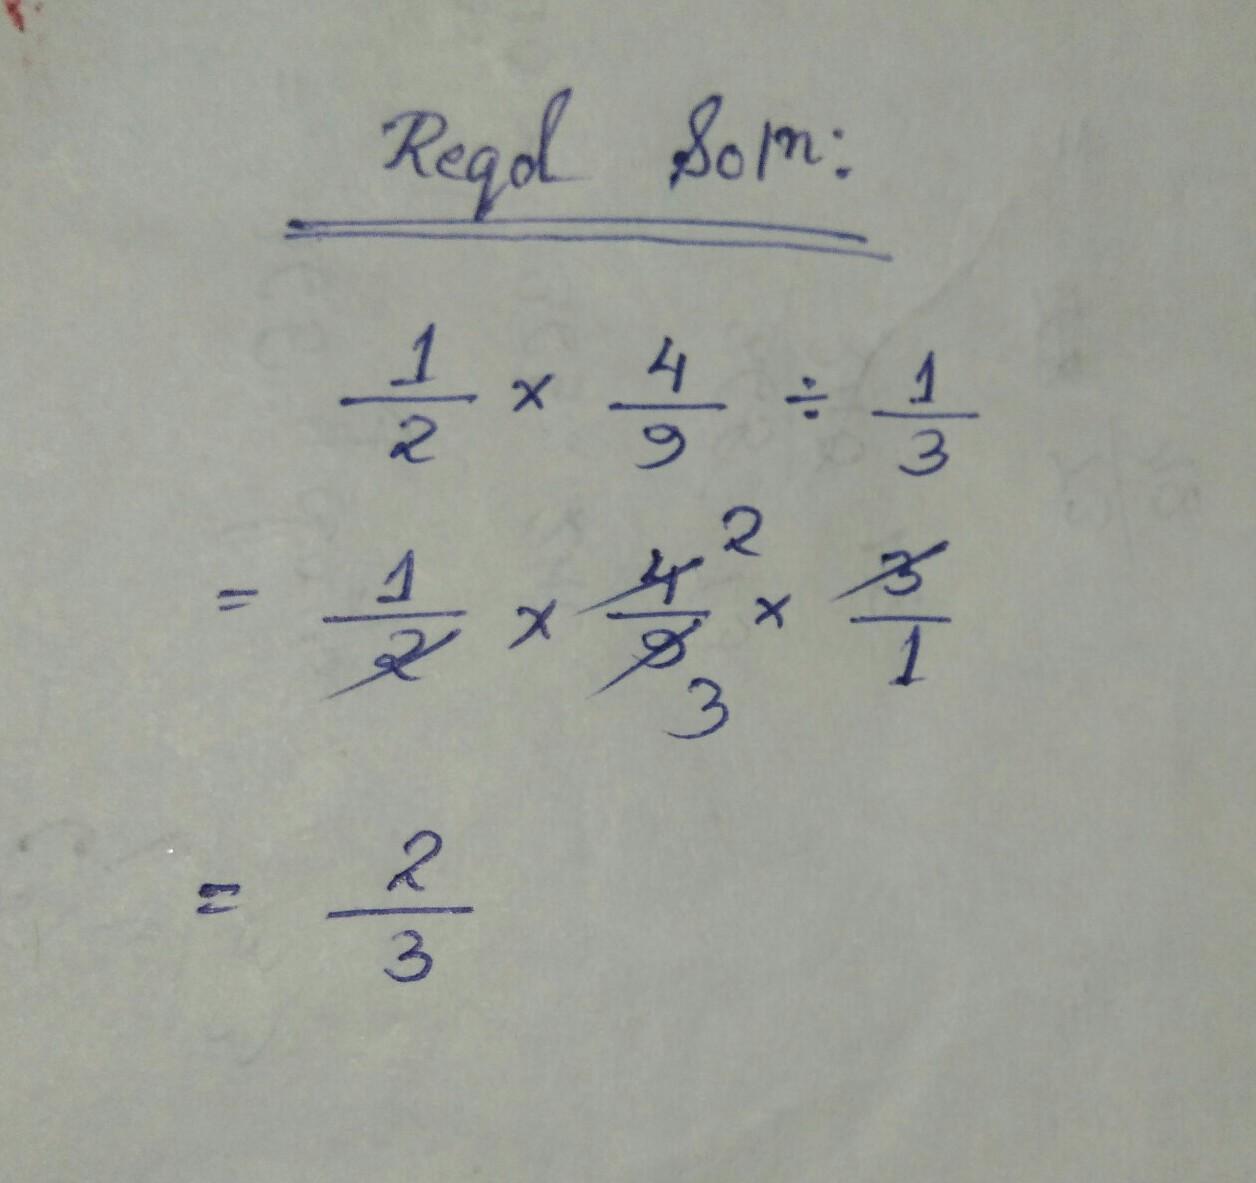 Reqd Soln:
1/2 × 4/9 ÷ 1/3
= 1/2 × 4/9 2 3 × 3/1
= 2/3